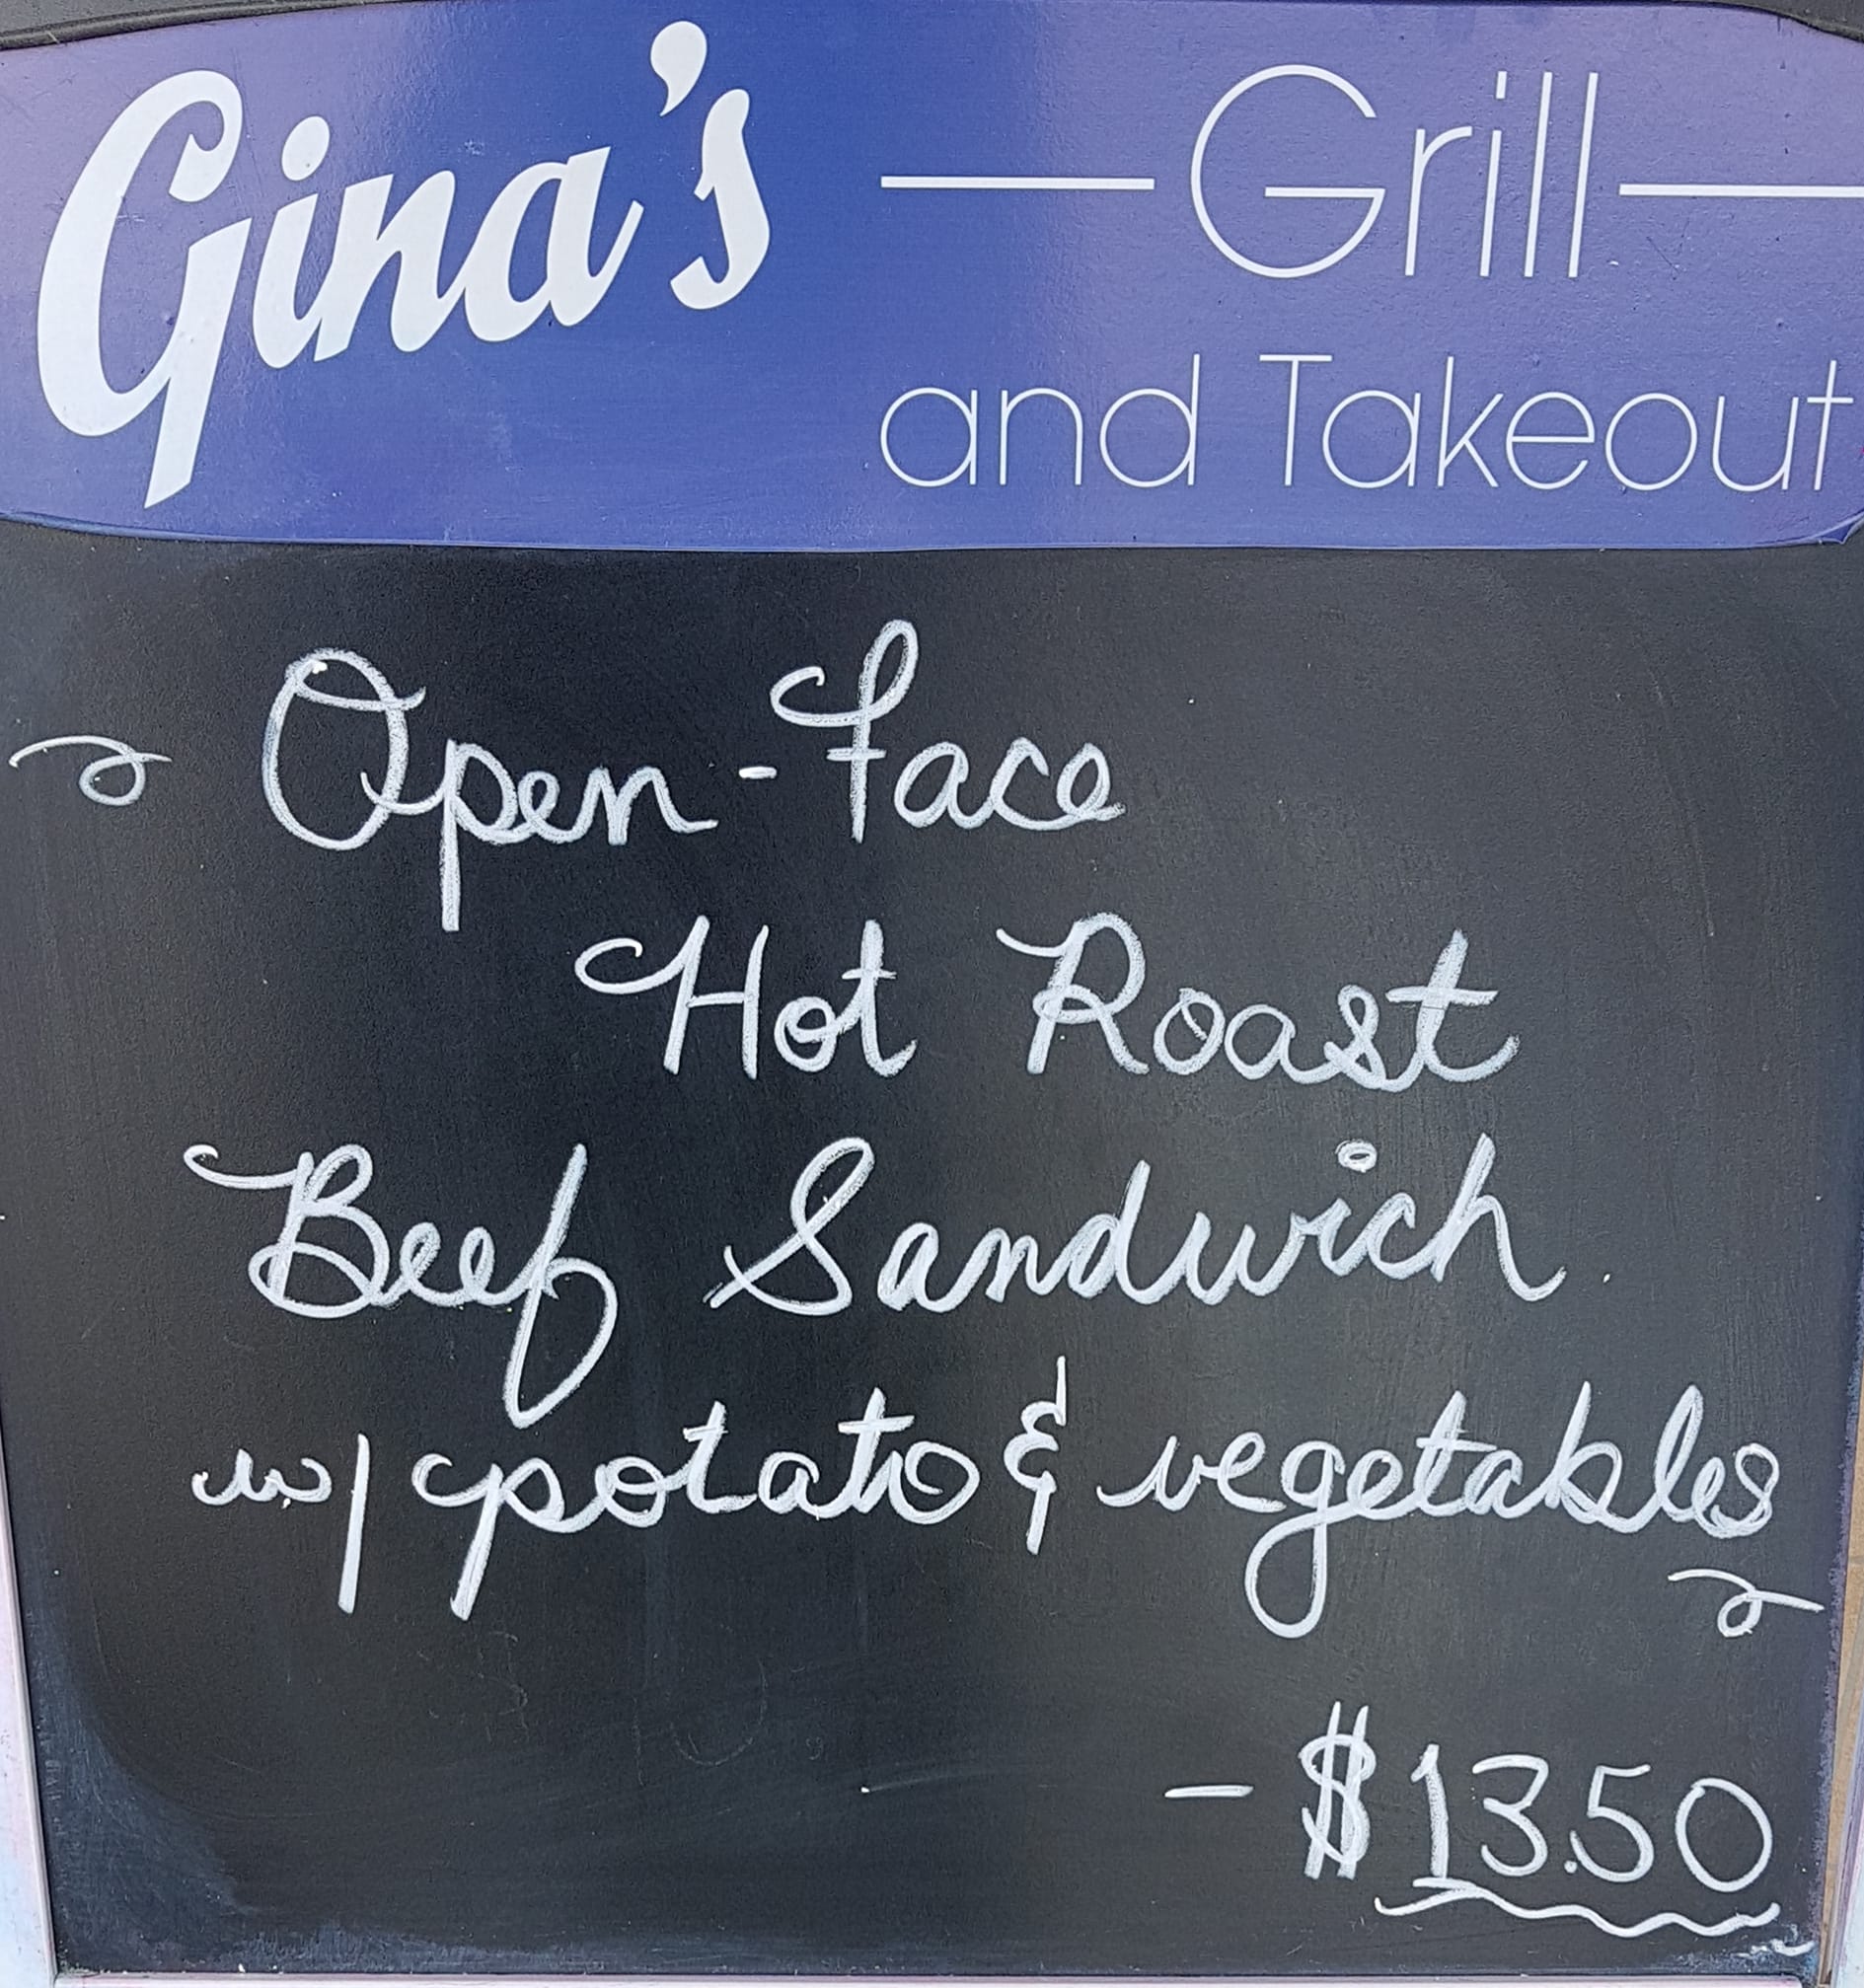 Gina's
Grill
and Takeout
Open-Face
Hot Roast
Beef Sandwich
w/ potato & vegetables
- $13.50